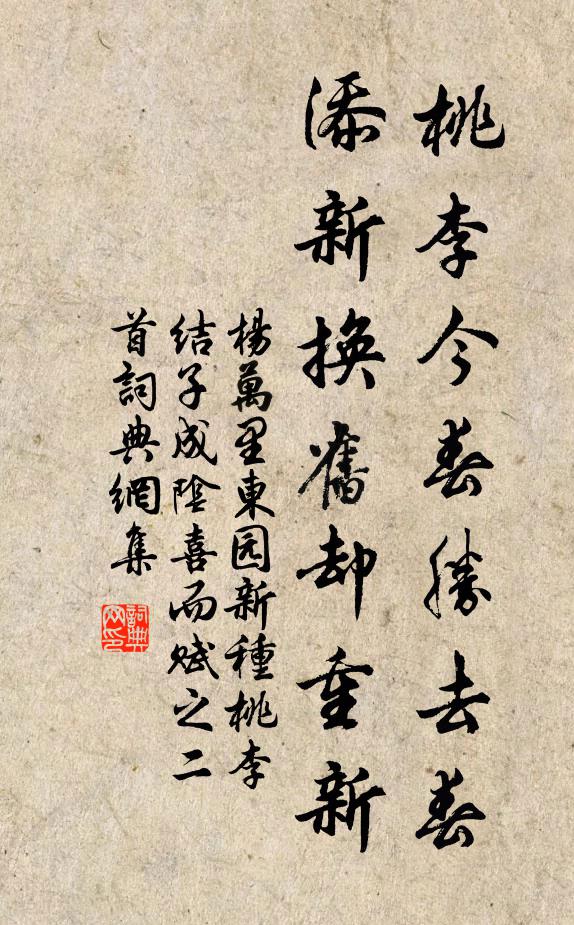 桃李今春勝去春
添新換舊却重新
楊萬里東园新種桃李
结子成陰喜而赋之二
首詞典網集
詞典网印